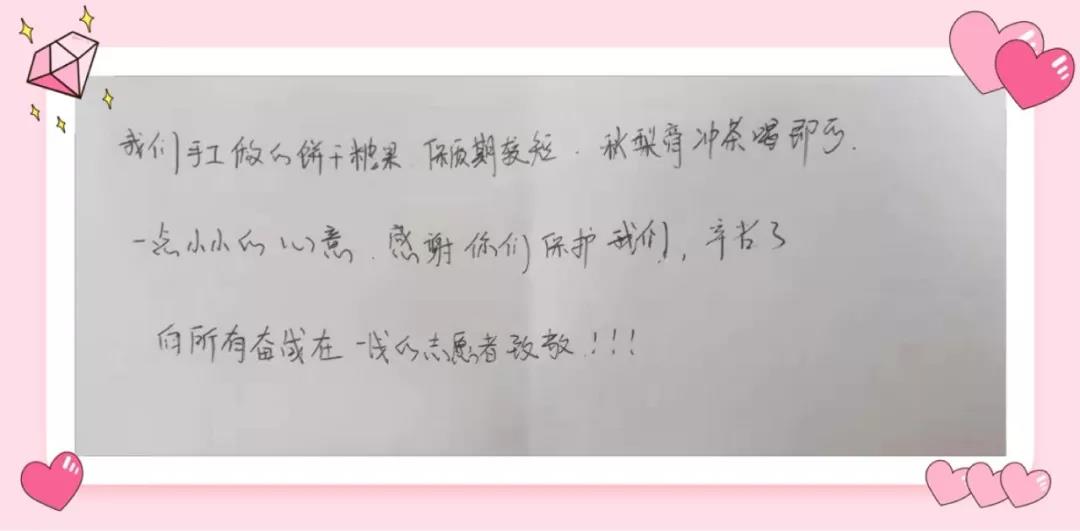 我们手工做的饼干糖果.保质期较短.秋梨膏冲茶喝即可.
一点小小的心意.感谢你们保护我们,辛苦了
向所有奋战在一线的志愿者致敬!!!